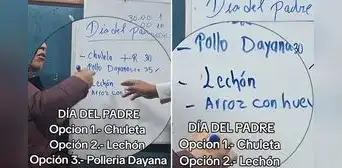 30.00
Dia del Pa
- Chuleta + R 30
Pollo Dayana 25
Lechón
Arroz con
DÍA DEL PADRE
Opcion 1.- Chuleta
Opción 2.- Lechón
Opción 3.- Polleria Dayana
Dia del padre
- Pollo Dayana 30
- Lechón
- Arroz con huev
DÍA DEL PADRE
Opción 1.- Chuleta
Opción 2.- Lechón